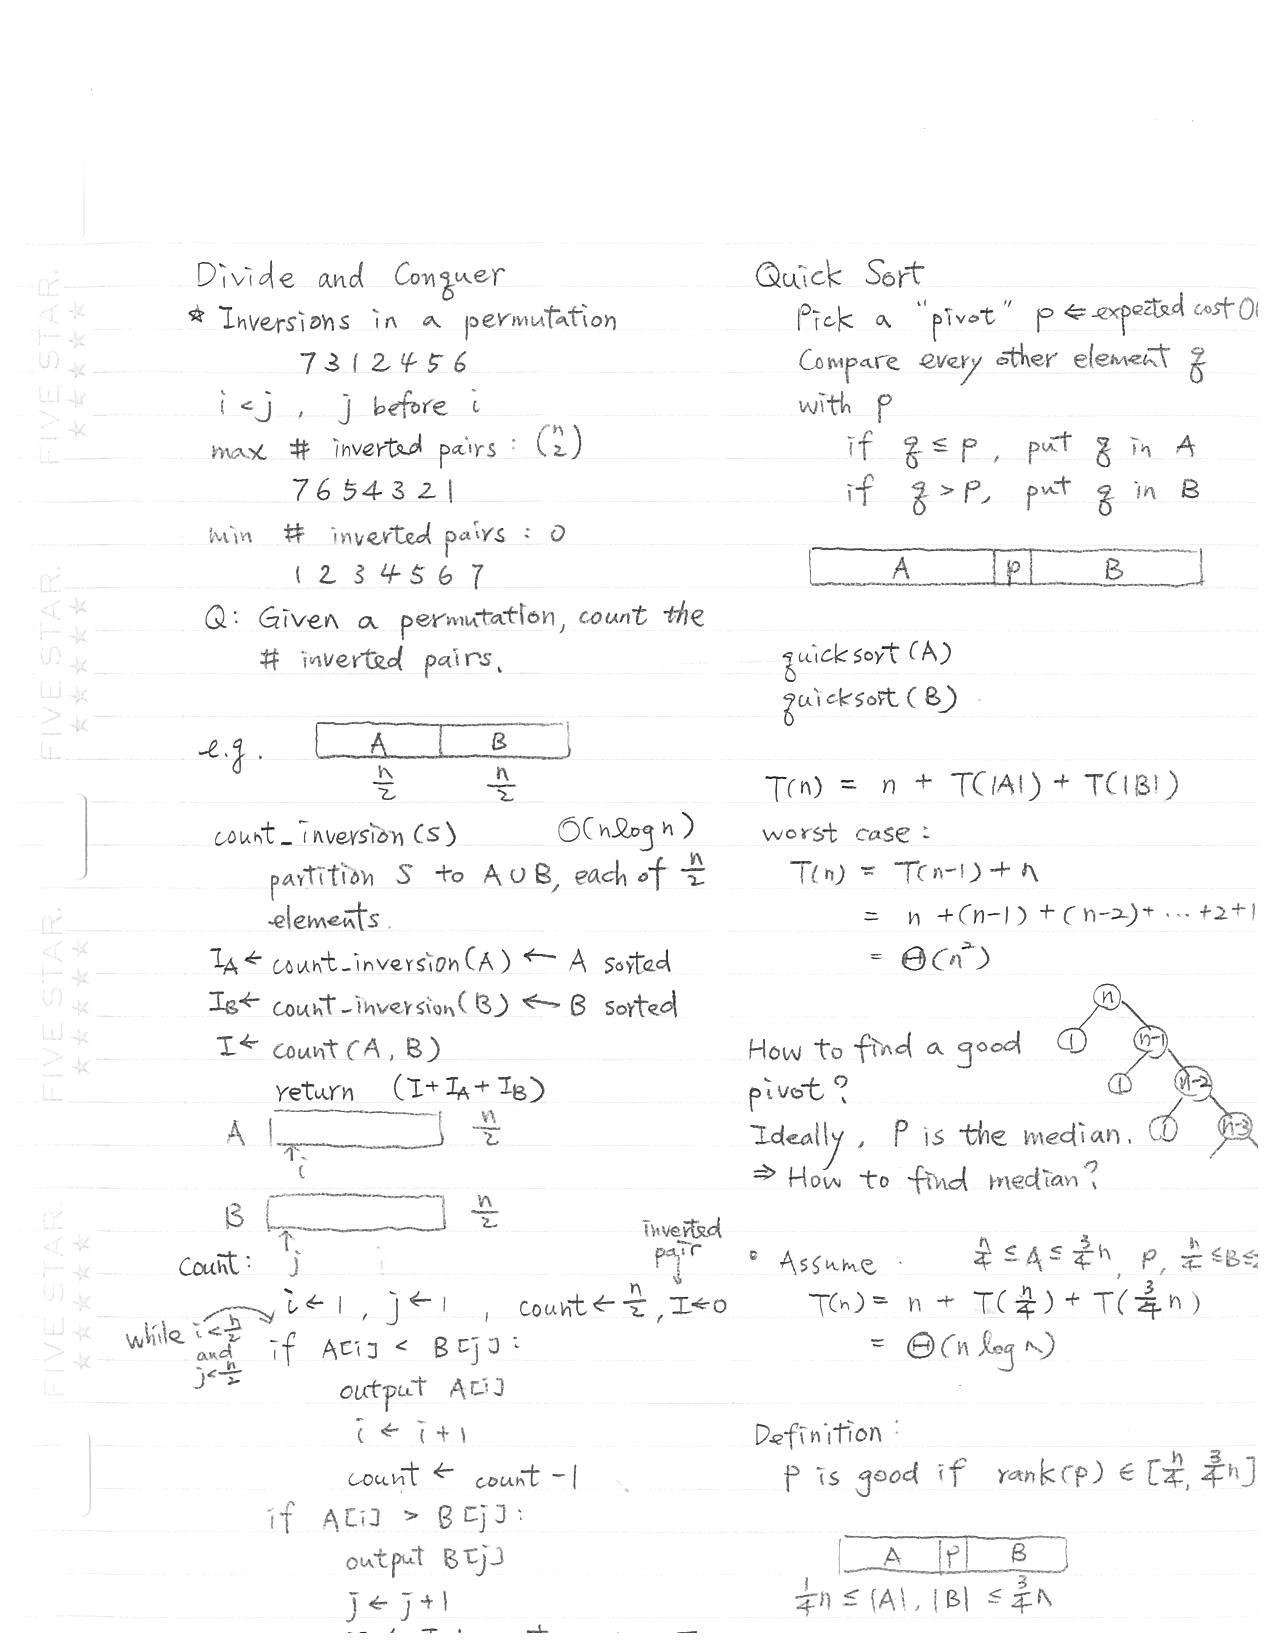 Divide and Conquer
* Inversions in a permutation
7 3 1 2 4 5 6
i < j , j before i
max # inverted pairs : (n 2)
7 6 5 4 3 2 1
min # inverted pairs : 0
1 2 3 4 5 6 7
Q: Given a permutation, count the
# inverted pairs.
e.g. A B
n/2 n/2
count_inversion(S) O(n log n)
partition S to A ∪ B, each of n/2
elements.
I_A ← count_inversion(A) ← A sorted
I_B ← count_inversion(B) ← B sorted
I ← count(A, B)
return (I + I_A + I_B)
A n/2
i
B n/2
inverted
pair
count: j
i ← 1, j ← 1, count ← n/2, I ← 0
while i < n/2
and
j < n/2
if A[i] < B[j]:
output A[i]
i ← i + 1
count ← count - 1
if A[i] > B[j]:
output B[j]
j ← j + 1
Quick Sort
Pick a "pivot" p ⇐ expected cost O(
Compare every other element q
with p
if q ≤ p, put q in A
if q > p, put q in B
A p B
quicksort(A)
quicksort(B)
T(n) = n + T(|A|) + T(|B|)
worst case:
T(n) = T(n-1) + n
= n + (n-1) + (n-2) + ... + 2 + 1
= Θ(n²)
n
1 n-1
1 n-2
1 n-3
How to find a good
pivot?
Ideally, P is the median.
⇒ How to find median?
• Assume n/4 ≤ A ≤ 3/4 n, p, n/4 ≤ B ≤
T(n) = n + T(n/4) + T(3/4 n)
= Θ(n log n)
Definition:
P is good if rank(p) ∈ [n/4, 3/4 n]
A p B
1/4 n ≤ |A|, |B| ≤ 3/4 n
FIVE STAR.
FIVE STAR.
FIVE STAR.
FIVE STAR.